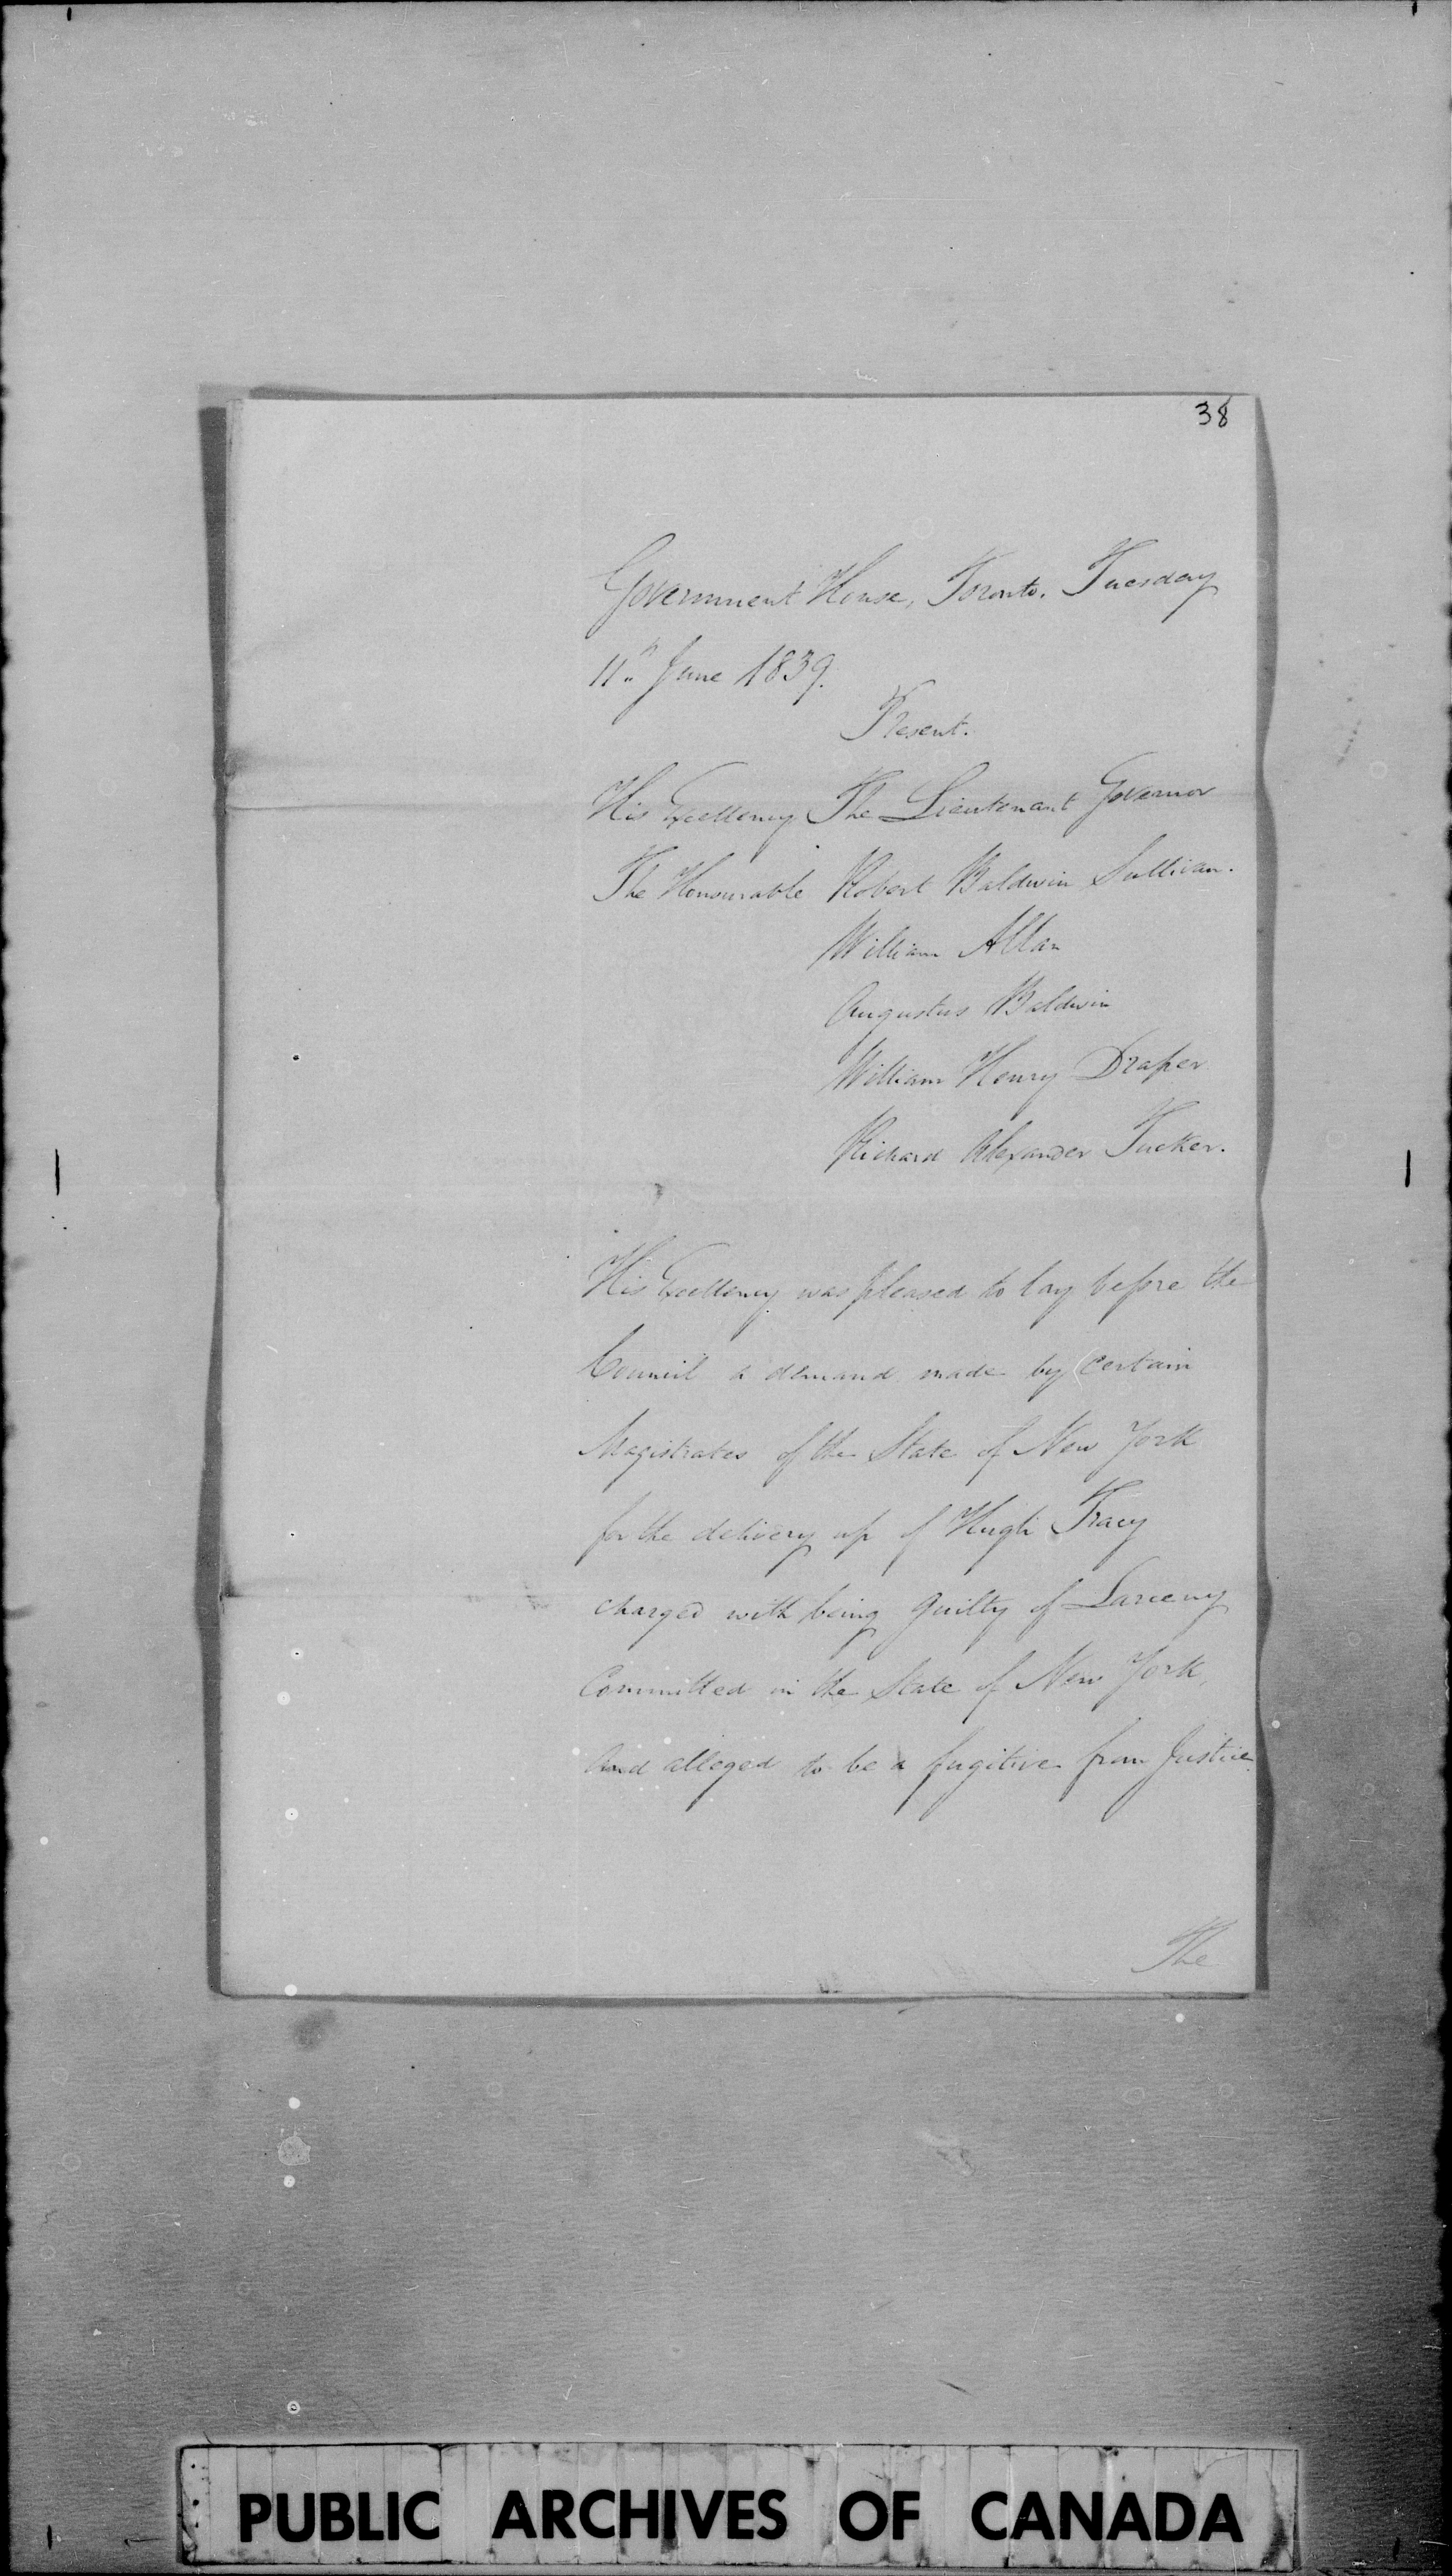 38
Government House, Toronto. Tuesday
11th June 1839.
Present.
His Excellency The Lieutenant Governor
The Honourable Robert Baldwin Sullivan.
William Allan
Augustus Baldwin
William Henry Draper
Richard Alexander Tucker.
His Excellency was pleased to lay before the
Council a demand made by certain
Magistrates of the State of New York
for the delivery up of Hugh Tracy
charged with being guilty of Larceny
Committed in the State of New York,
And alleged to be a fugitive from Justice.
The
PUBLIC ARCHIVES OF CANADA